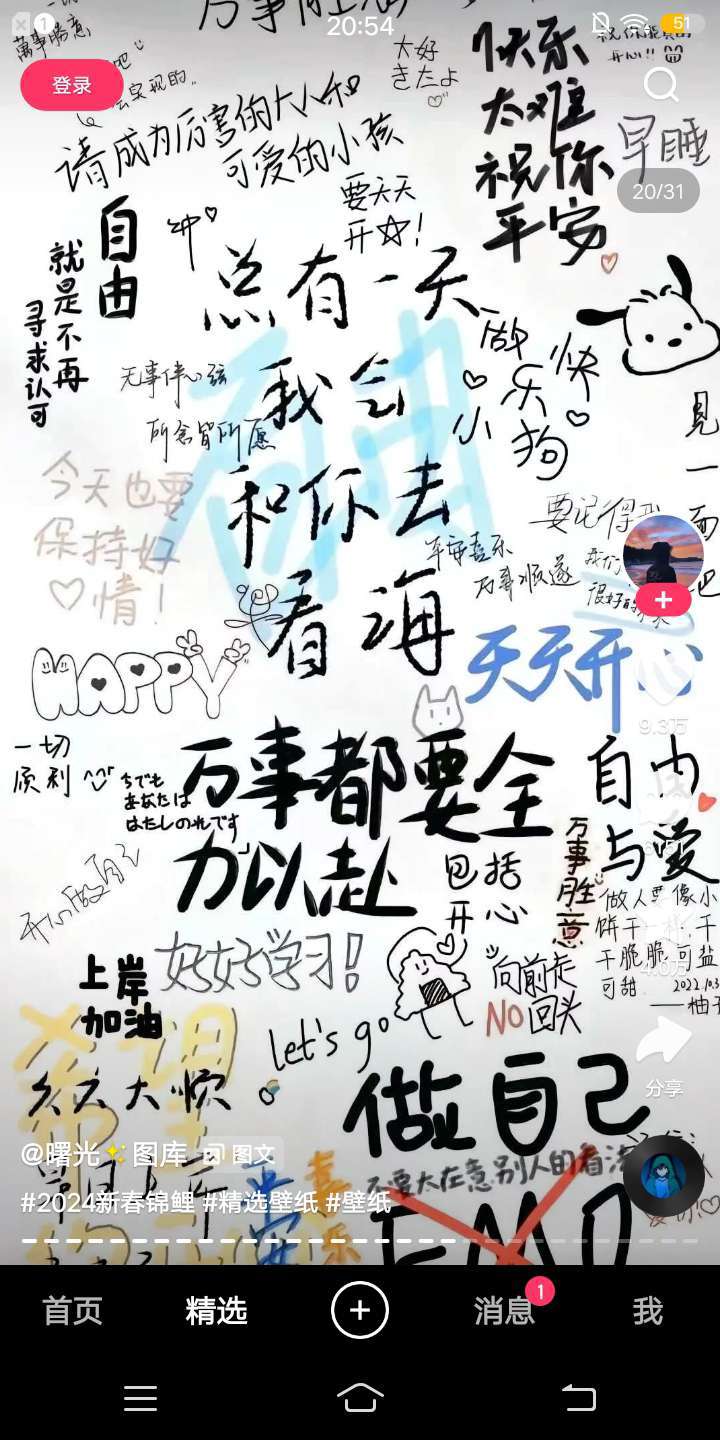 20:54
51
1
登录
20/31
大好
きたよ
快乐
太难
祝你
平安
早睡
请成为厉害的大人和
可爱的小孩
要天天
开☆!
自由
就是不再
寻求认可
总有一天
我会
和你去
看海
自由
做
快
乐
小
狗
无事伴心弦
所念皆所愿
今天也要
保持好
♡情!
见
一
面
吧
要记得
平安喜乐
万事顺遂
我们
HAPPY
天天开心
9.3万
一切
顺利
万事都要全
力以赴
包括
开心
自由
与爱
万事胜意
ちでも
あなたは
はたしのれです
开心做自己
好好学习!
上岸
加油
做人要像小
饼干一样,干
干脆脆可盐
可甜
2022.10.3
——柚子
4.0万
向前走
NO回头
let's go
希望
天天大顺
做自己
分享
@曙光✨图库
图文
不要太在意别人的看法
平安
喜乐
#2024新春锦鲤 #精选壁纸 #壁纸
EMO
首页
精选
消息
1
我